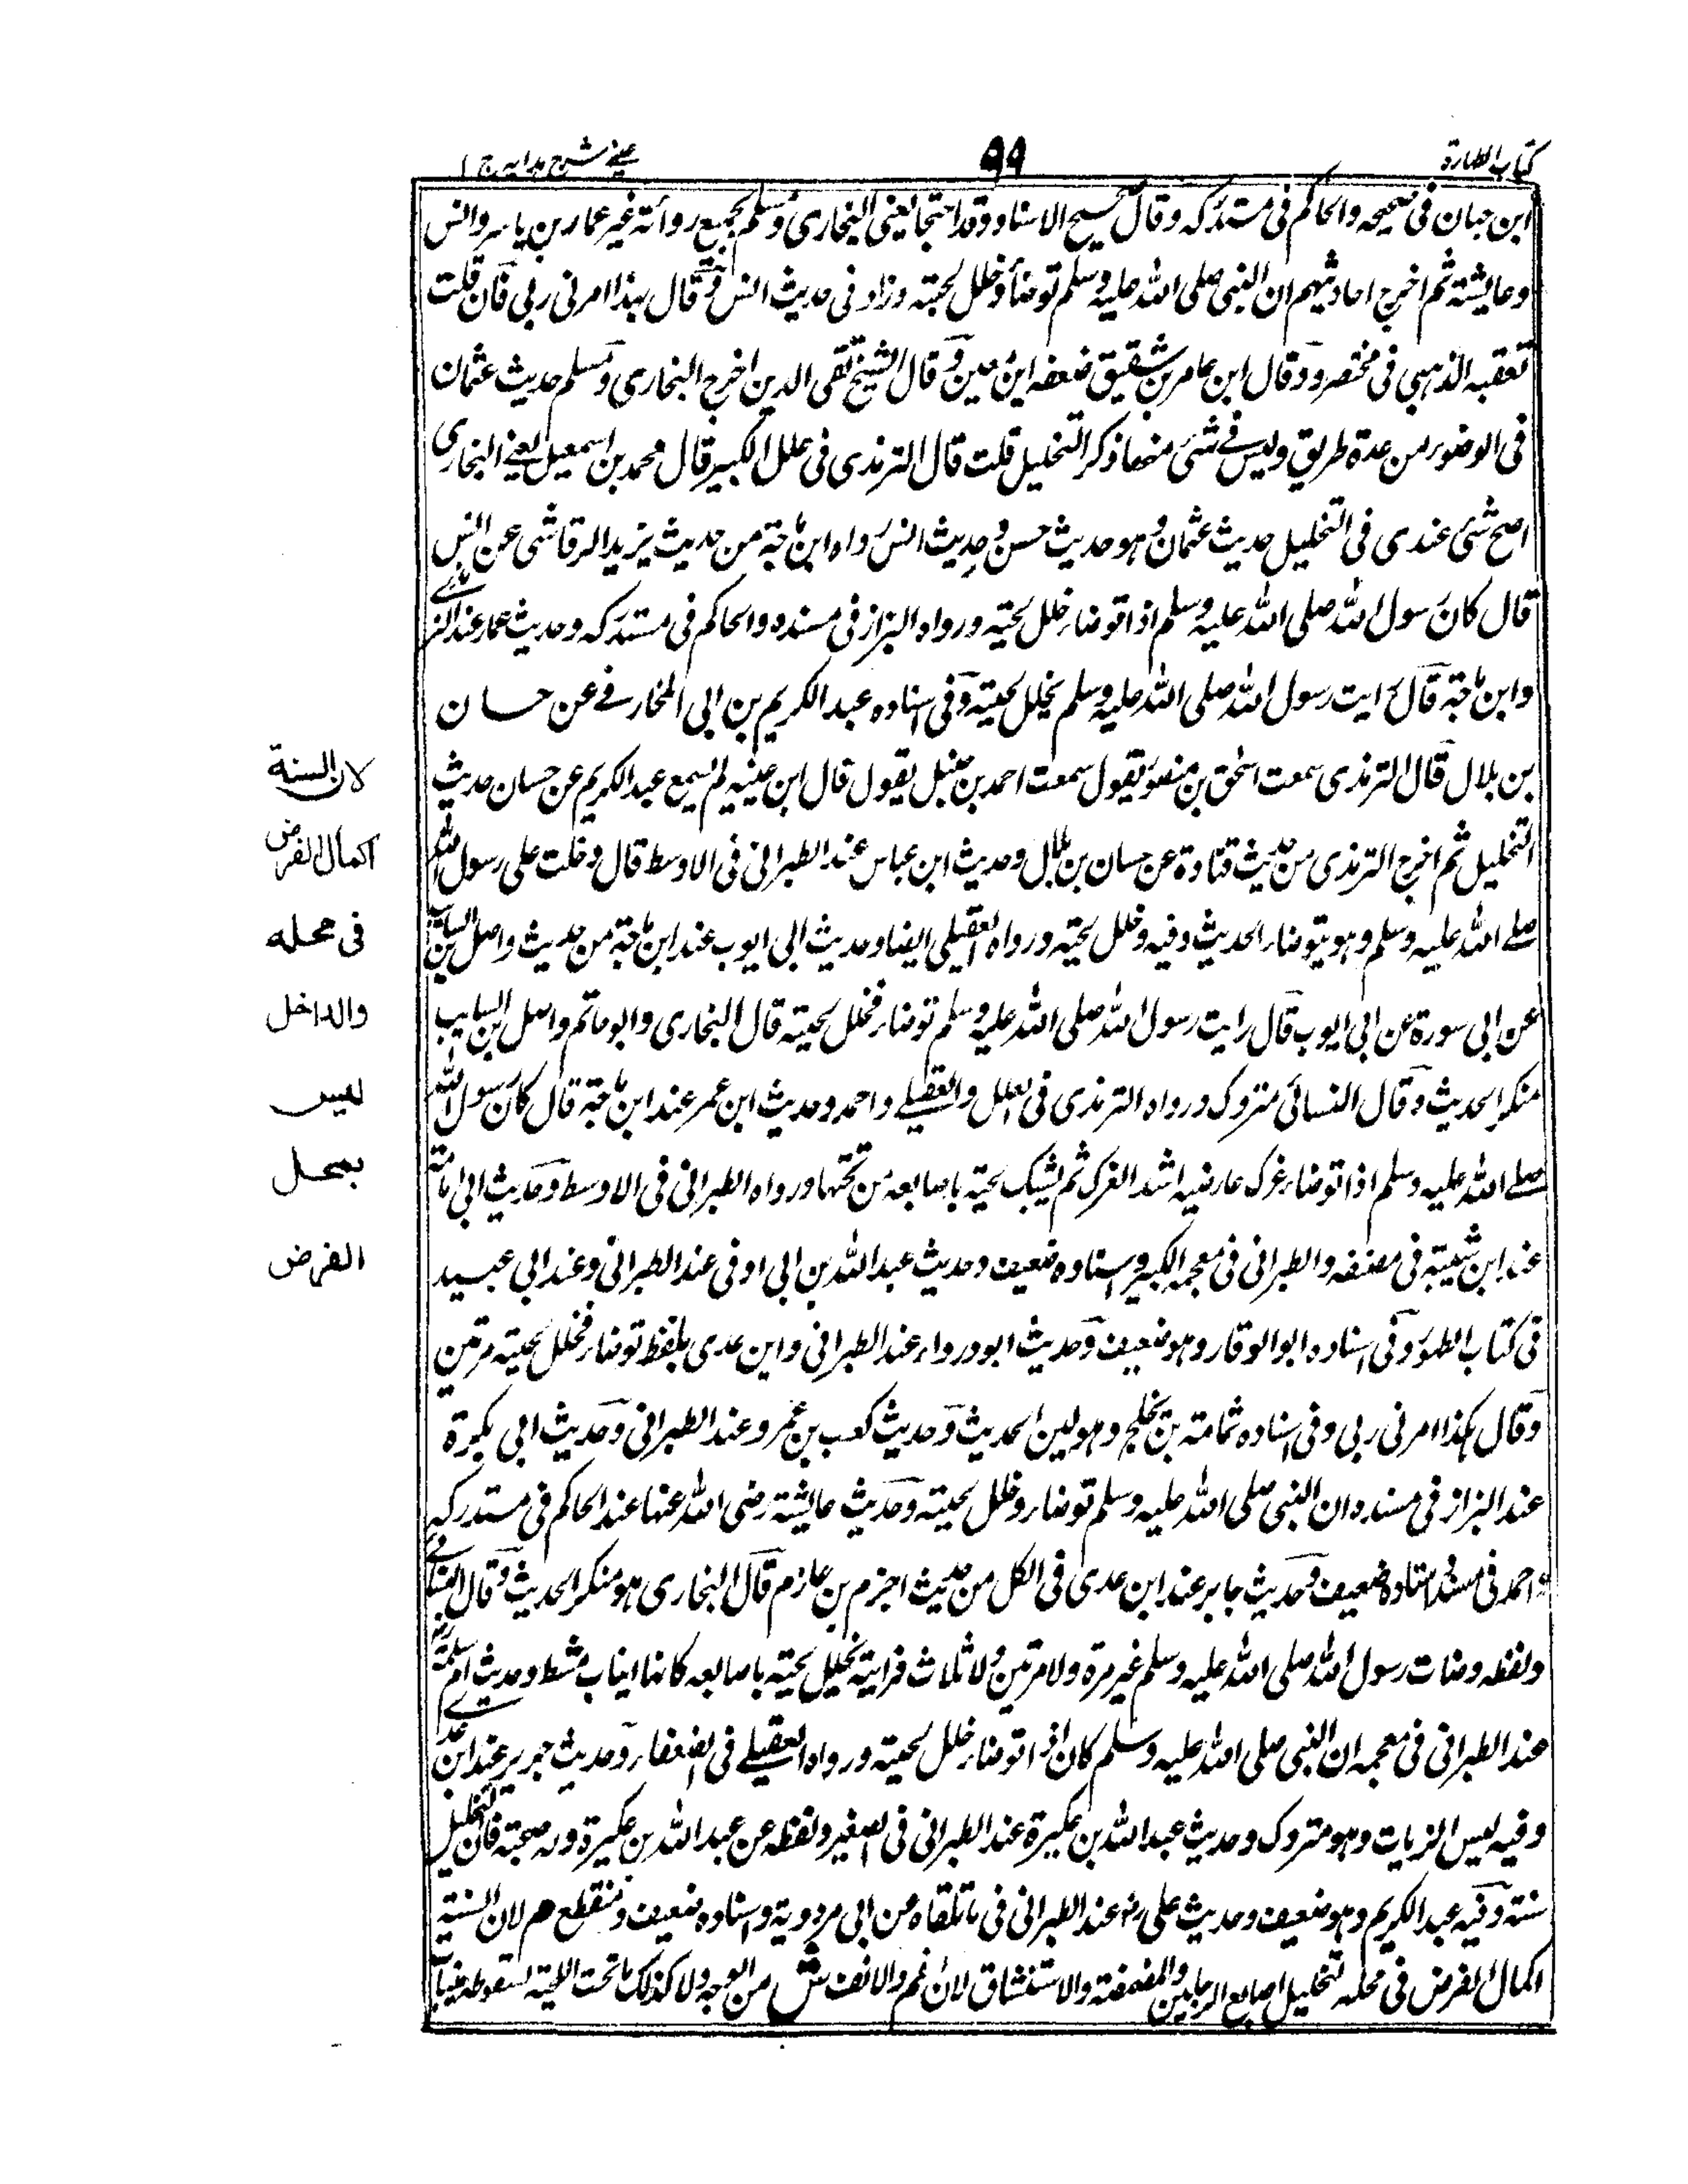 كتاب الطهارة
٩٩
عيني شرح هدايه ج ١
ابن حبان فى صحيحه والحاكم فى مستدركه وقال صحيح الاسناد وقد احتجا يعنى البخارى ومسلم بجميع رواته غير عمار بن ياسر وانس
وعايشة ثم اخرج احاديثهم ان النبى صلى الله عليه وسلم توضأ وخلل لحيته وزاد فى حديث انس وقال بهذا امرنى ربى فان قلت
تعقبه الذهبى فى مختصره وقال ابن عامر بن شقيق ضعفه ابن معين وقال الشيخ تقى الدين اخرج البخارى ومسلم حديث عثمان
فى الوضوء من عدة طريق وليس فى شئ منها ذكر التخليل قلت قال الترمذى فى علل الكبير قال محمد بن اسمعيل يعنى البخارى
اصح شئ عندى فى التخليل حديث عثمان وهو حديث حسن وحديث انس رواه ابن ماجة من حديث يزيد الرقاشى عن انس
قال كان رسول الله صلى الله عليه وسلم اذا توضاء خلل لحيته ورواه البزاز فى مسنده والحاكم فى مستدركه وحديث عمار عند الترمذى
وابن ماجة قال رايت رسول الله صلى الله عليه وسلم يخلل لحيته وفى اسناده عبد الكريم بن ابى المخارق عن حسان
بن بلال قال الترمذى سمعت اسحق بن منصور يقول سمعت احمد بن حنبل يقول قال ابن عيينه لم يسمع عبد الكريم عن حسان حديث
التخليل ثم اخرج الترمذى من حديث قتادة عن حسان بن بلال وحديث ابن عباس عند الطبرانى فى الاوسط قال دخلت على رسول الله
صلى الله عليه وسلم وهو يتوضاء الحديث وفيه وخلل لحيته ورواه العقيلى ايضا وحديث ابى ايوب عند ابن ماجة من حديث واصل بن السايب
عن ابى سورة عن ابى ايوب قال رايت رسول الله صلى الله عليه وسلم توضاء فخلل لحيته قال البخارى وابو حاتم واصل ابن السايب
منكر الحديث وقال النسائى متروك ورواه الترمذى فى العلل والعقيلى واحمد وحديث ابن عمر عند ابن ماجة قال كان رسول الله
صلى الله عليه وسلم اذا توضاء عرك عارضيه اشد العرك ثم يشبك لحيته باصابعه من تحتها ورواه الطبرانى فى الاوسط وحديث ابى امامة
عند ابن شيبة فى مصنفه والطبرانى فى معجمه الكبير واسناده ضعيف وحديث عبد الله بن ابى اوفى عند الطبرانى وعند ابى عبيد
فى كتاب الطهور وفى اسناده ابو الوقار وهو ضعيف وحديث ابو درداء عند الطبرانى وابن عدى بلفظ توضاء فخلل لحيته مرتين
وقال هكذا امرنى ربى وفى اسناده ثمامة بن نجيح وهو لين الحديث وحديث كعب بن عمرو عند الطبرانى وحديث ابى بكرة
عند البزاز فى مسنده ان النبى صلى الله عليه وسلم توضاء وخلل لحيته وحديث عايشة رضى الله عنها عند الحاكم فى مستدركه
واحمد فى مسنده اسناده ضعيف وحديث جابر عند ابن عدى فى الكل من حديث اجزم بن عازم قال البخارى هو منكر الحديث وقال النسائى
ولفظه وضات رسول الله صلى الله عليه وسلم غير مرة ولا مرتين ولا ثلاث فرايته يخلل لحيته باصابعه كانها انياب مشط وحديث ام سلمة
عند الطبرانى فى معجمه ان النبى صلى الله عليه وسلم كان اذا توضاء خلل لحيته ورواه العقيلى فى الضعفاء وحديث جرير عند ابن عدى
وفيه ليس الزيات وهو متروك وحديث عبد الله بن عكبرة عند الطبرانى فى الصغير ولفظه عن عبد الله بن عكبرة وله صحبة قال التخليل
سنة وفيه عبد الكريم وهو ضعيف وحديث على رض عند الطبرانى فى ما تلقاه عن ابى مردويه واسناده ضعيف ومنقطع م لان السنة
اكمال الفرض فى محله لتخليل اصابع الرجلين والمضمضة والاستنشاق لان فم والانف ش من الوجه ولا كذلك ما تحت اللحية لسقوطه
لان السنة
اكمال الفرض
فى محله
والداخل
ليس
بمحل
الفرض